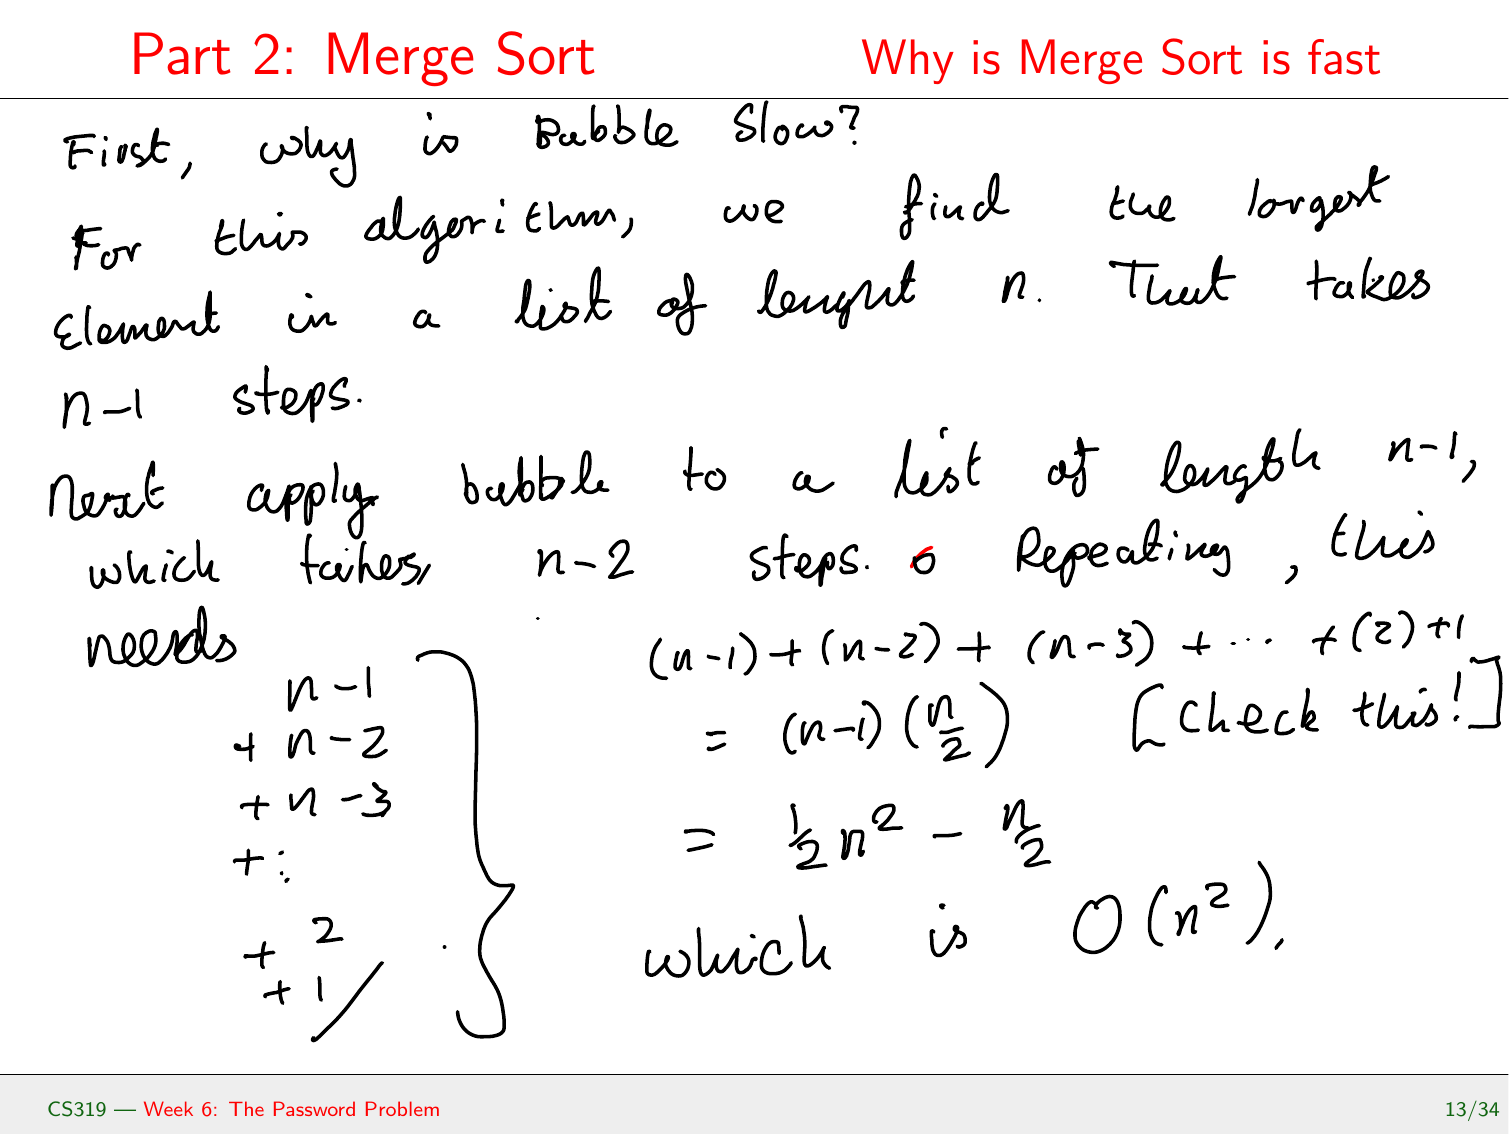 Part 2: Merge Sort
Why is Merge Sort is fast
First, why is Bubble Slow?
For this algorithm, we find the largest
Element in a list of lenght n. That takes
n-1 steps.
Next apply bubble to a list of length n-1,
which takes, n-2 steps. Repeating, this
needs
n-1
+ n-2
+ n-3
+ :
+ 2
+ 1
(n-1) + (n-2) + (n-3) + ... + (2) + 1
= (n-1) (n/2) [Check this!]
= 1/2 n² - n/2
which is O(n²).
CS319 — Week 6: The Password Problem
13/34